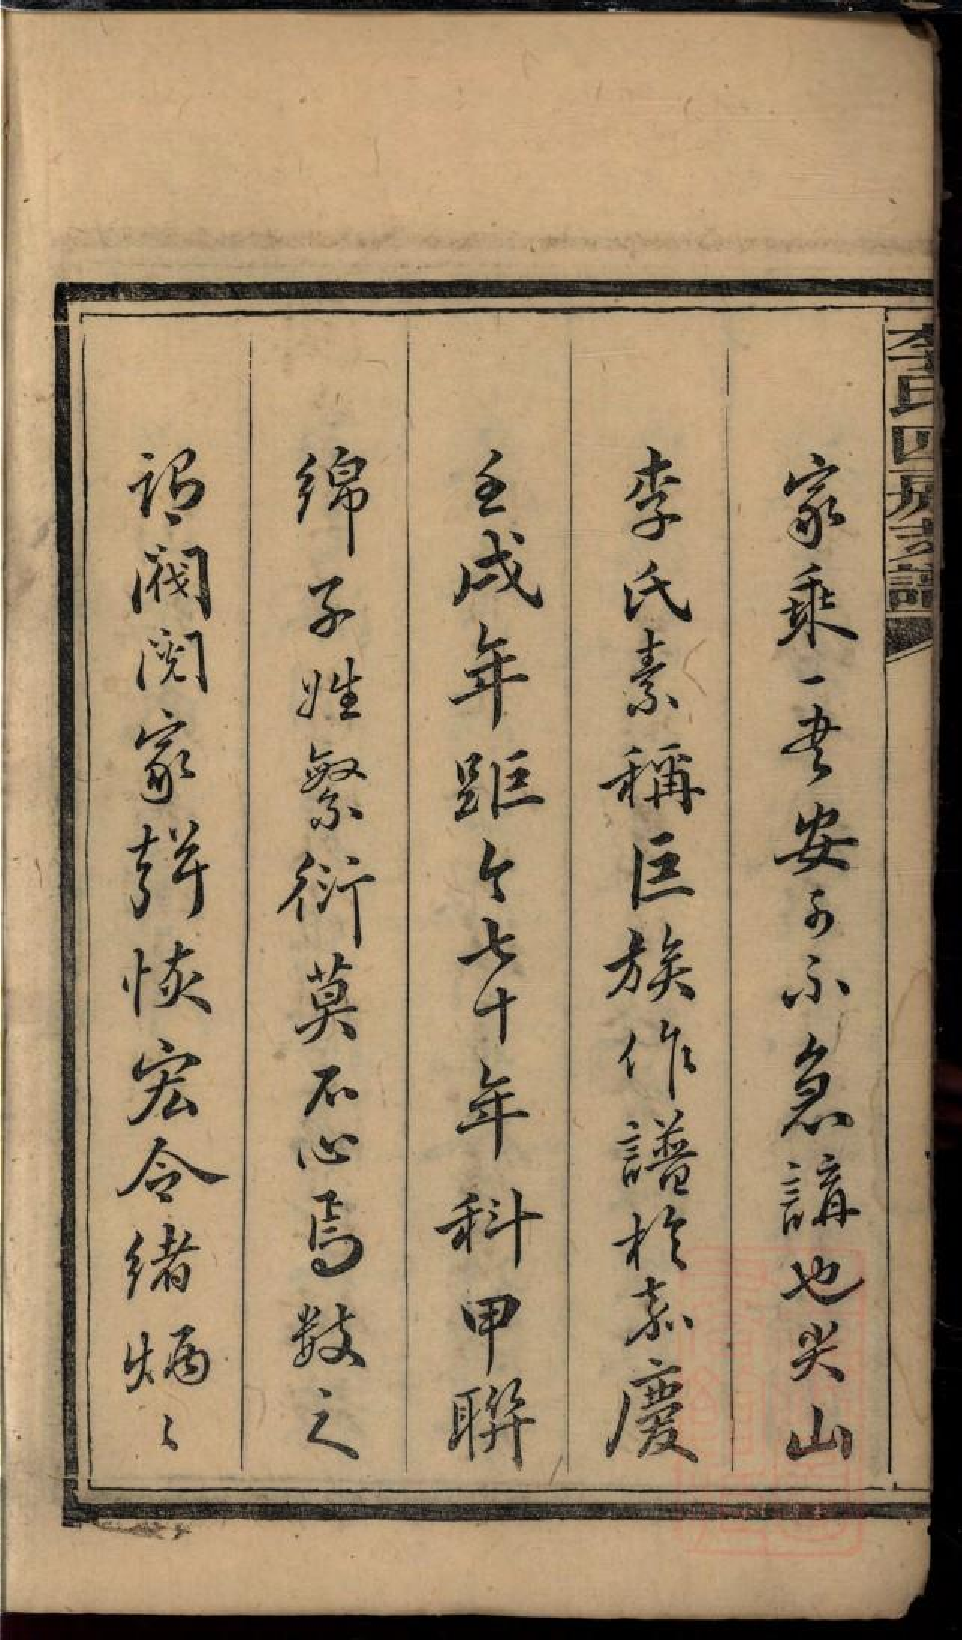 李氏四房支譜
家乘一書安可不急講也尖山
李氏素稱巨族作譜於嘉慶
壬戌年距今七十年科甲聯
綿子姓繁衍莫不心焉數之
謂閥閱家聲恢宏令緒炳〻